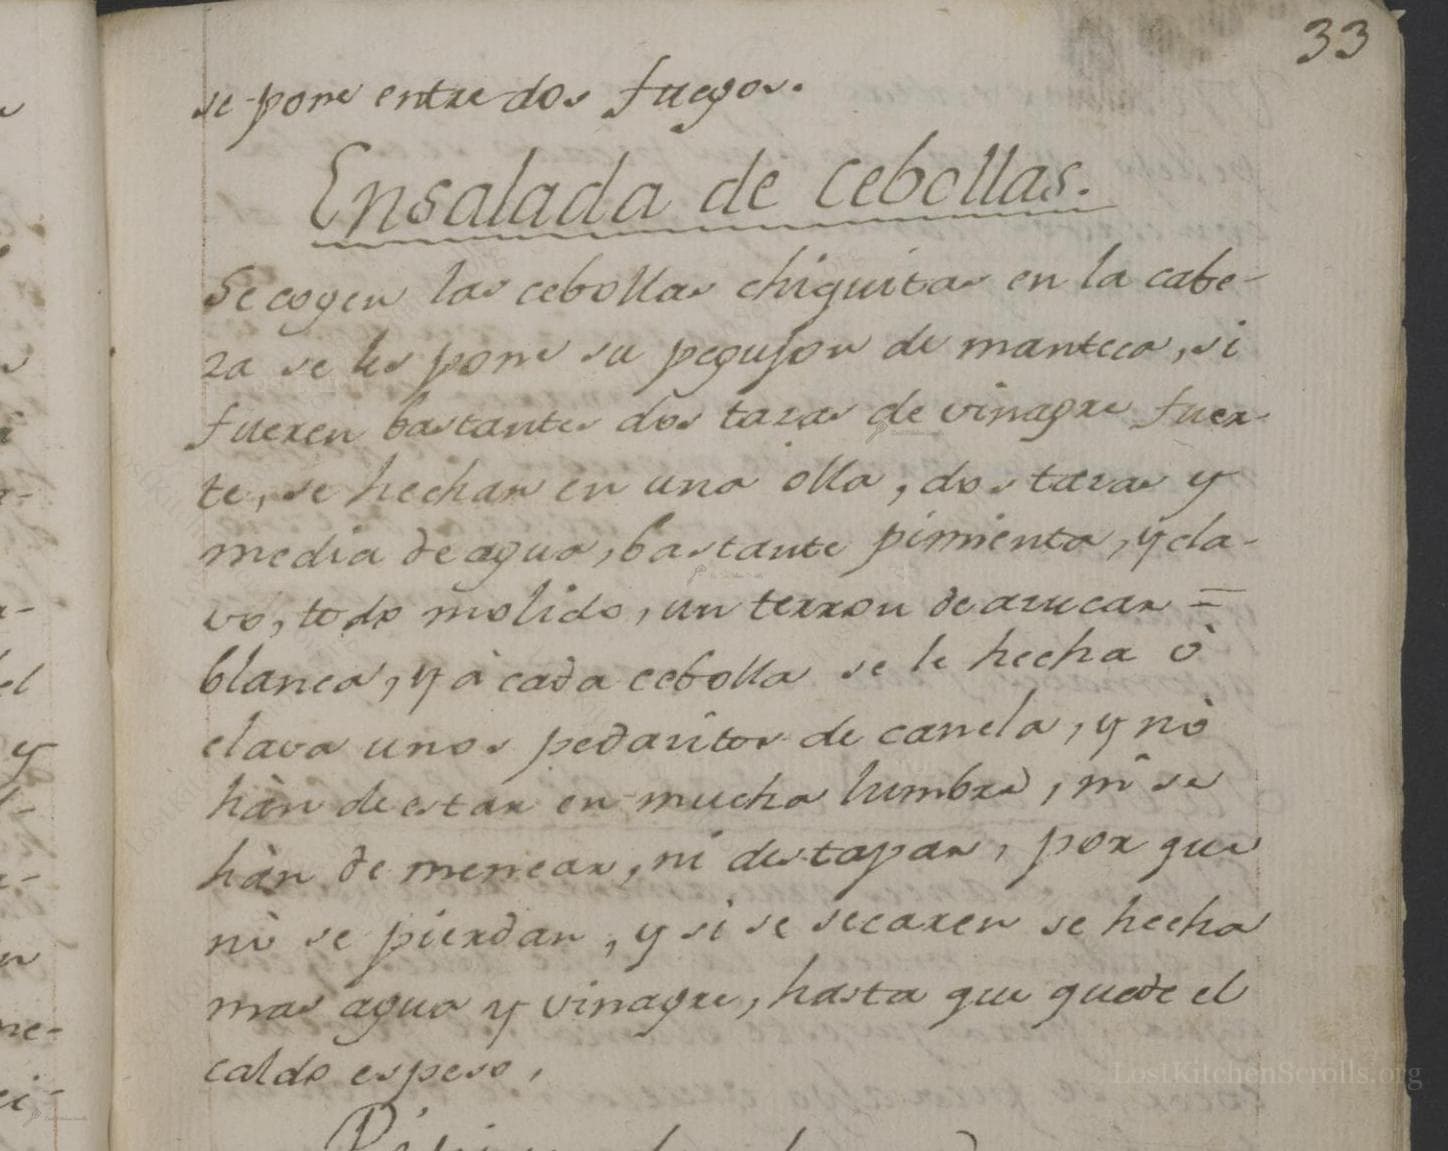 33
se pone entre dos fuegos.
Ensalada de cebollas.
Se cogen las cebollas chiquitas en la cabe-
za se les pone su pegujon de manteca, si
fueren bastantes dos tazas de vinagre fuer-
te, se hechan en una olla, dos tazas y
media de agua, bastante pimienta, y cla-
vo, todo molido, un terron de azucar =
blanca, y à cada cebolla se le hecha ò
clava unos pedazitos de canela, y nò
hàn de estar en mucha lumbre, ni se
hàn de menear, ni destapar, por que
nò se pierdan, y si se secaren se hecha
mas agua y vinagre, hasta que quede el
caldo espeso,
LostKitchenScrolls.org